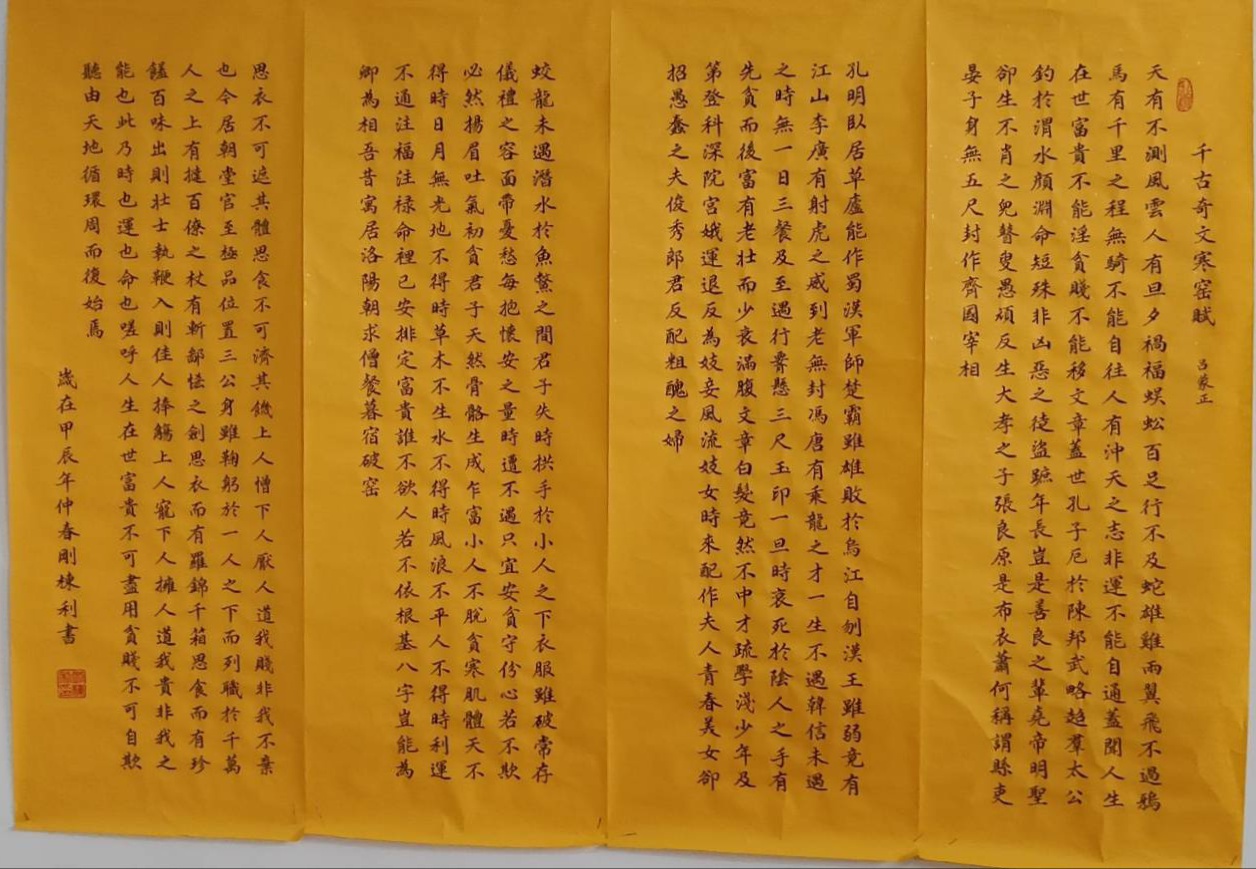 千古奇文寒窑賦 吕蒙正
天有不測風雲人有旦夕禍福蜈蚣百足行不及蛇雄雞兩翼飛不過鴉
馬有千里之程無騎不能自往人有沖天之志非運不能自通蓋聞人生
在世富貴不能淫貧賤不能移文章蓋世孔子厄於陳邦武略超羣太公
釣於渭水顏淵命短殊非凶惡之徒盜跖年長豈是善良之輩堯帝明聖
卻生不肖之兒瞽叟愚頑反生大孝之子張良原是布衣蕭何稱謂縣吏
晏子身無五尺封作齊國宰相
孔明臥居草廬能作蜀漢軍師楚霸雖雄敗於烏江自刎漢王雖弱竟有
江山李廣有射虎之威到老無封馮唐有乘龍之才一生不遇韓信未遇
之時無一日三餐及至遇行霽懸三尺玉印一旦時衰死於陰人之手有
先貧而後富有老壯而少衰滿腹文章白髮竟然不中才疏學淺少年及
第登科深院宮娥運退反為妓妾風流妓女時來配作夫人青春美女卻
招愚蠢之夫俊秀郎君反配粗醜之婦
蛟龍未遇潛水於魚鱉之間君子失時拱手於小人之下衣服雖破常存
儀禮之容面帶憂愁每抱懷安之量時遭不遇只宜安貧守份心若不欺
必然揚眉吐氣初貧君子天然骨骼生成乍富小人不脫貧寒肌體天不
得時日月無光地不得時草木不生水不得時風浪不平人不得時利運
不通注福注禄命裡已安排定富貴誰不欲人若不依根基八字豈能為
卿為相吾昔寓居洛陽朝求僧餐暮宿破窑
思衣不可遮其體思食不可濟其饑上人憎下人厭人道我賤非我不棄
也今居朝堂官至極品位置三公身雖鞠躬於一人之下而列職於千萬
人之上有撻百僚之杖有斬鄙怯之劍思衣而有羅錦千箱思食而有珍
饈百味出則壯士執鞭入則佳人捧觴上人寵下人擁人道我貴非我之
能也此乃時也運也命也嗟呼人生在世富貴不可盡用貧賤不可自欺
聽由天地循環周而復始焉
歲在甲辰年仲春剛棟利書